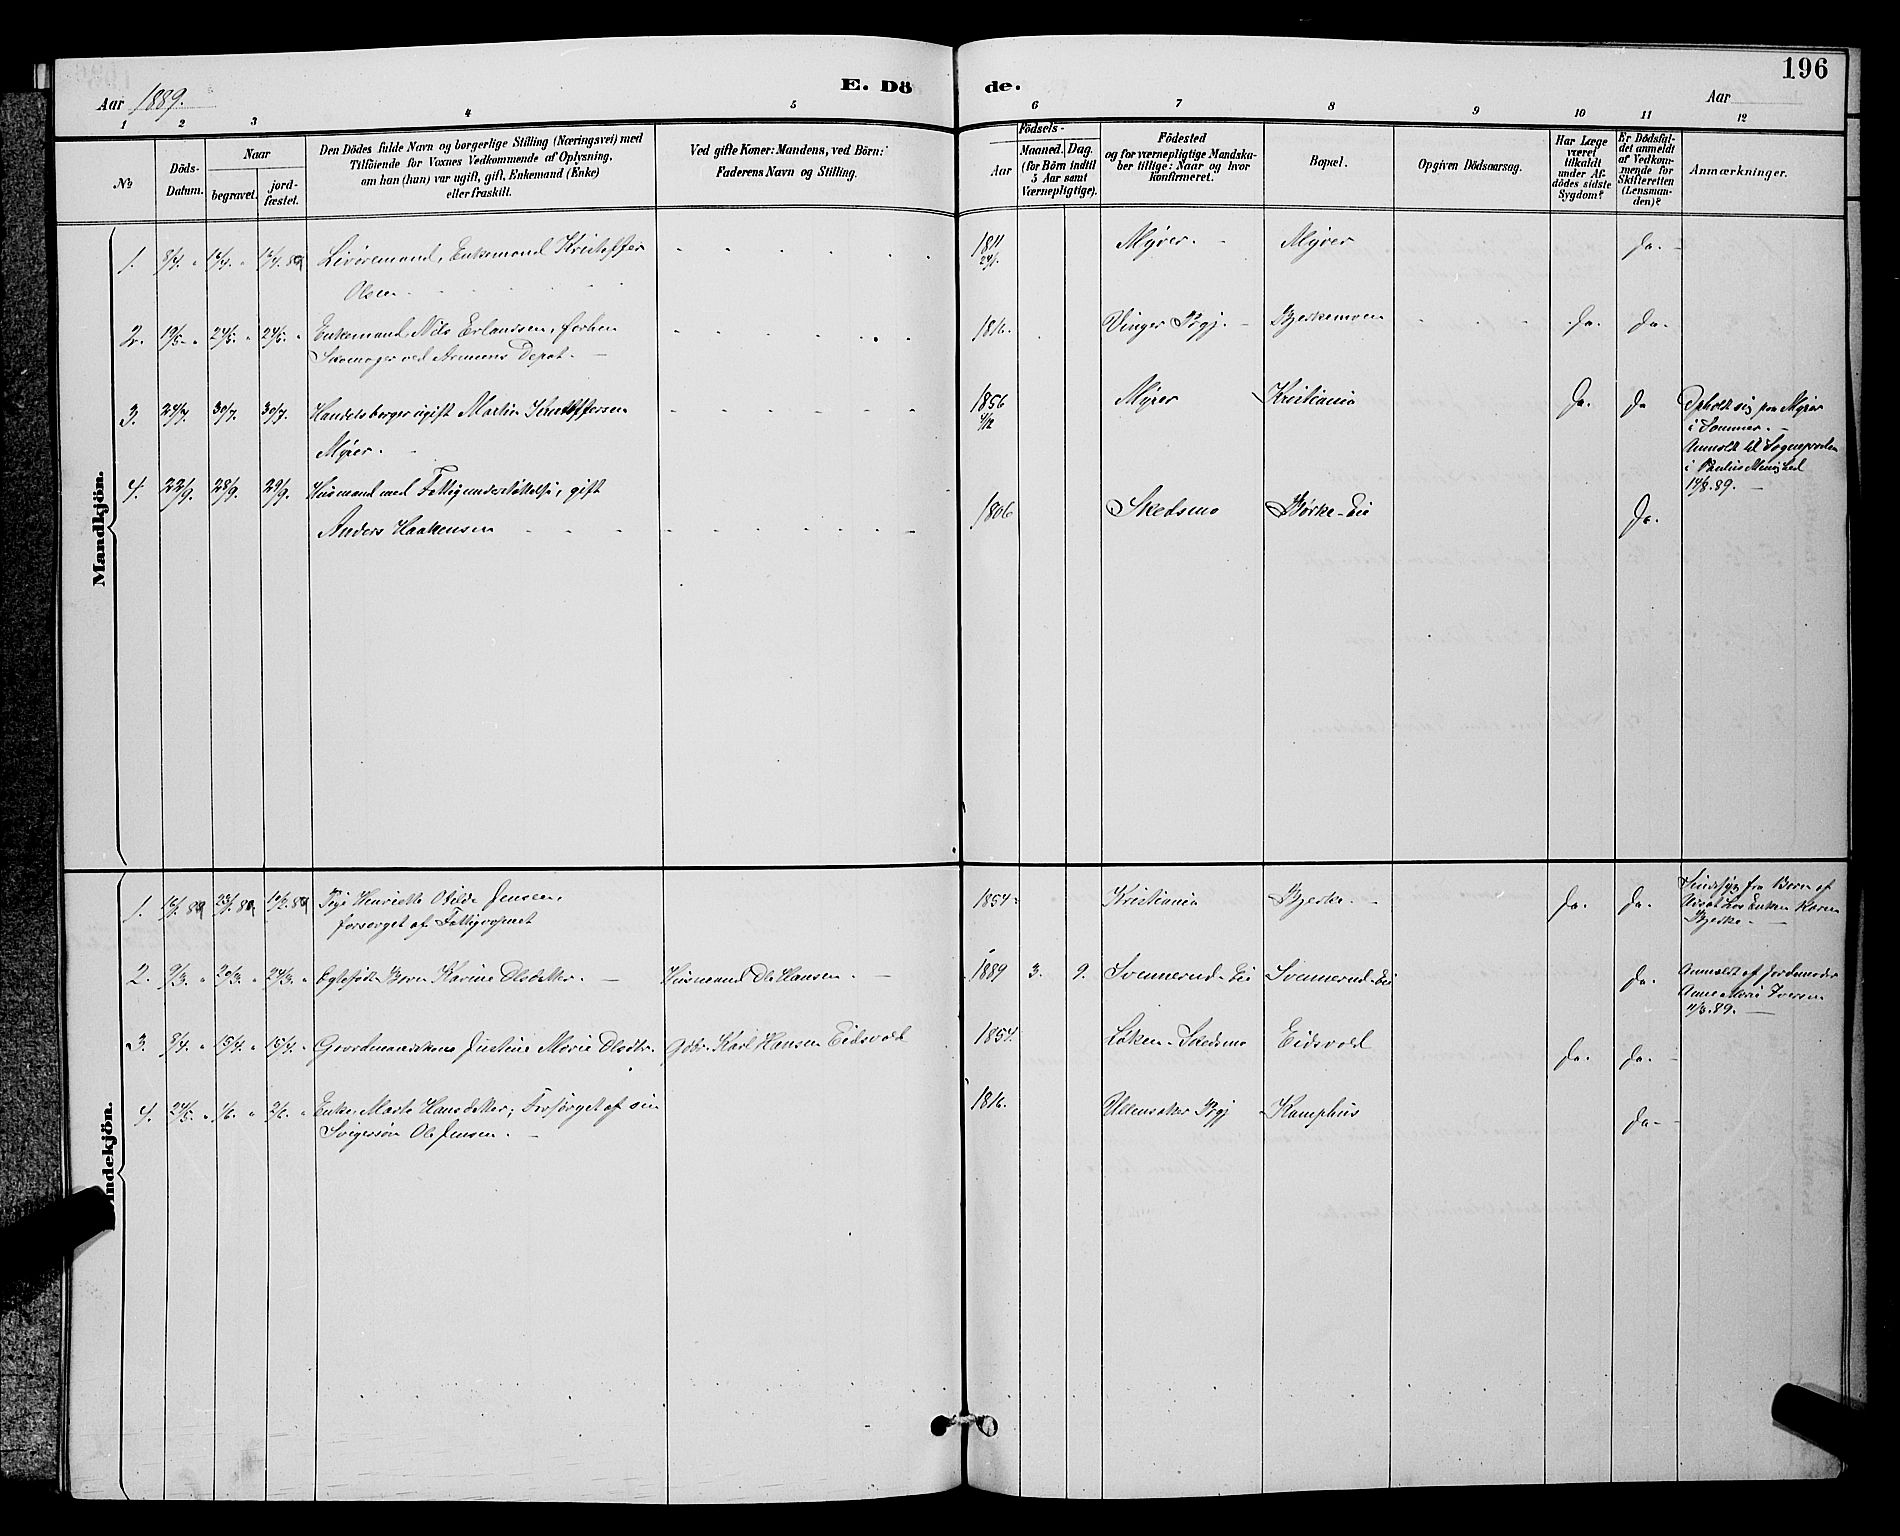 196
E. Dö de.
Aar 1889.
Aar
1 2 3 4 5 6 7 8 9 10 11 12
No
Döds-
Datum.
Naar
begravet.
jord-
fæstet.
Den Dödes fulde Navn og borgerlige Stilling (Næringsvei) med
Tilföiende for Voxnes Vedkommende af Oplysning,
om han (hun) var ugift, gift, Enkemand (Enke)
eller fraskilt.
Ved gifte Koner: Mandens, ved Börn:
Faderens Navn og Stilling.
Födsels-
Aar
Maaned. Dag.
(for Börn indtil
5 Aar samt
Værnepligtige).
Födested
og for værnepligtige Mandska-
ber tillige: Naar og hvor
konfirmeret.
Bopæl.
Opgiven Dödsaarsag.
Har Læge
været
tilkaldt
under Af-
dödes sidste
Sygdom?
Er Dödsfal-
det anmeldt
af Vedkom-
mende for
Skifteretten
(Lensman-
den)?
Anmærkninger.
Mandkjön.
1. 8/4. " Enkemand Kristoffer 1811 Myrer. - Myrer Ja. -
Olsen 24/1.
2. 19/5 - " 24/5. " 24/5. " Enkemand Nils Erlandsen, forhen 1816. Vinger Prgj. - Bjerkemoen Ja. Ja.
ved Armeens Depot. -
3. 24/7. 30/7. 30/7. Handelsborger ugift Martin Kristoffersen 1856 Myrer Kristiania Ja. Ja Opholdt sig paa Myrer
Myrer. 4/12 i Sommer. -
Anmeldt til Sognepresten
i Paulus Menighed
14/8. 89. -
4. 22/9. 28/9. 29/9. Husmand med Fattigunderstøttelse, gift
Anders Haakensen 1806 Skedsmo Børke-Eie Ja.
Kvindekjön.
1. Pige Henriette Otilde Jensen, 1854 Kristiania Bjerke. - Ja. Ja. Sindssyg fra Barn af
forsørget af Fattigvæsenet Enken Karen
Bjerke. -
2. 9/3. " 20/3. " 24/3. " Ægtefødt Barn Karine Olsdatter. - Husmand Ole Hansen. - 1889 3. 9. Svennerud-Eie Svennerud-Eie Ja. Anmeldt af Jordemoder
Anne Marie Iversen
11/3. 89. -
3. 8/4. " 15/4. " 15/4. " Gaardmandskone Justine Marie Olsdtr. Gdbr. Karl Hansen Eidsvold 1854. Løken - Skedsmo Eidsvold Ja. Ja. -
4. 24/5. " 1/6. " 2/6. " Enke Marte Hansdatter; Forsørget af sin 1816. Ullensaker Prgj Kamphus Ja. -
Svigersøn Ole Jensen. -